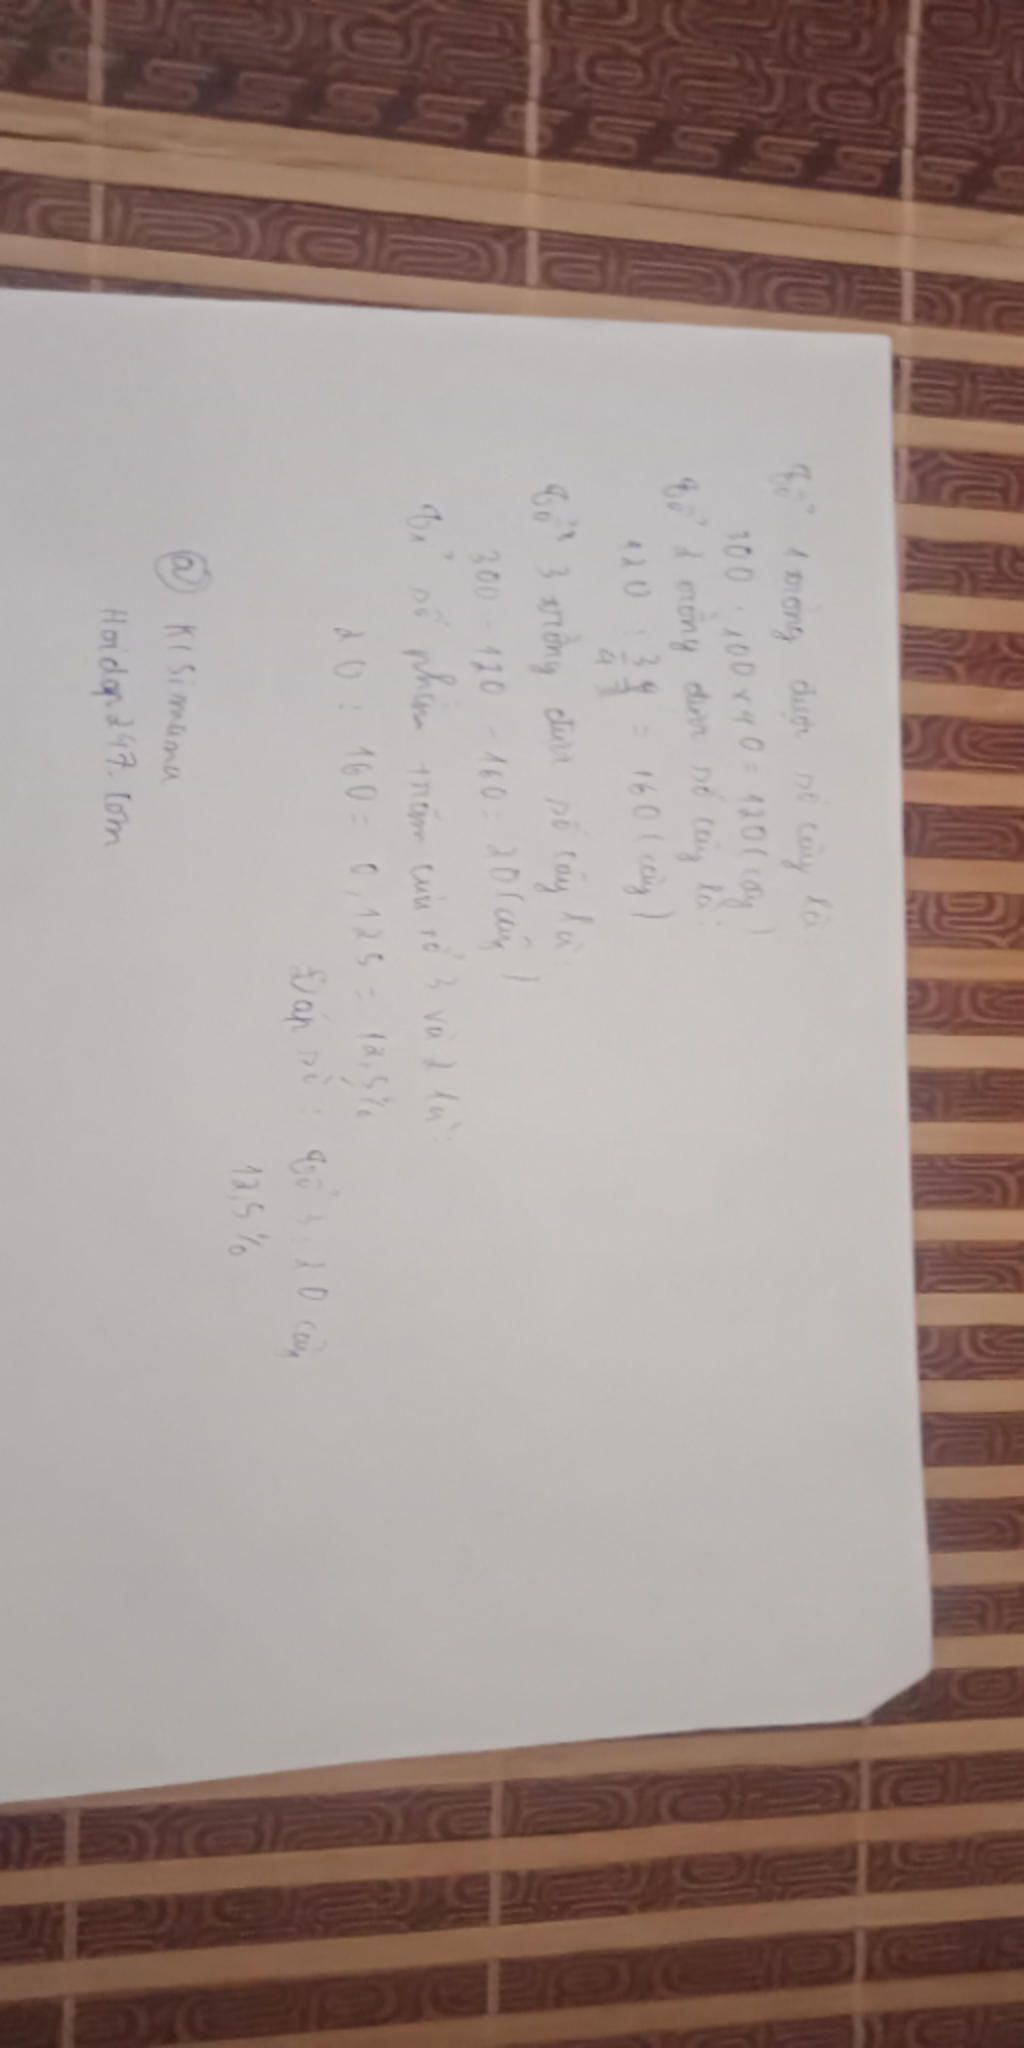 Tổ 1 trồng được số cây là:
300 : 100 x 40 = 120 (cây)
Tổ 2 trồng được số cây là:
120 : 3/4 = 160 (cây)
Tổ 3 trồng được số cây là:
300 - 120 - 160 = 20 (cây)
Tỉ số phần trăm của tổ 3 và 2 là:
20 : 160 = 0,125 = 12,5%
Đáp số: Tổ 3: 20 cây
12,5%
@ Kisimama
Hoidap247.com